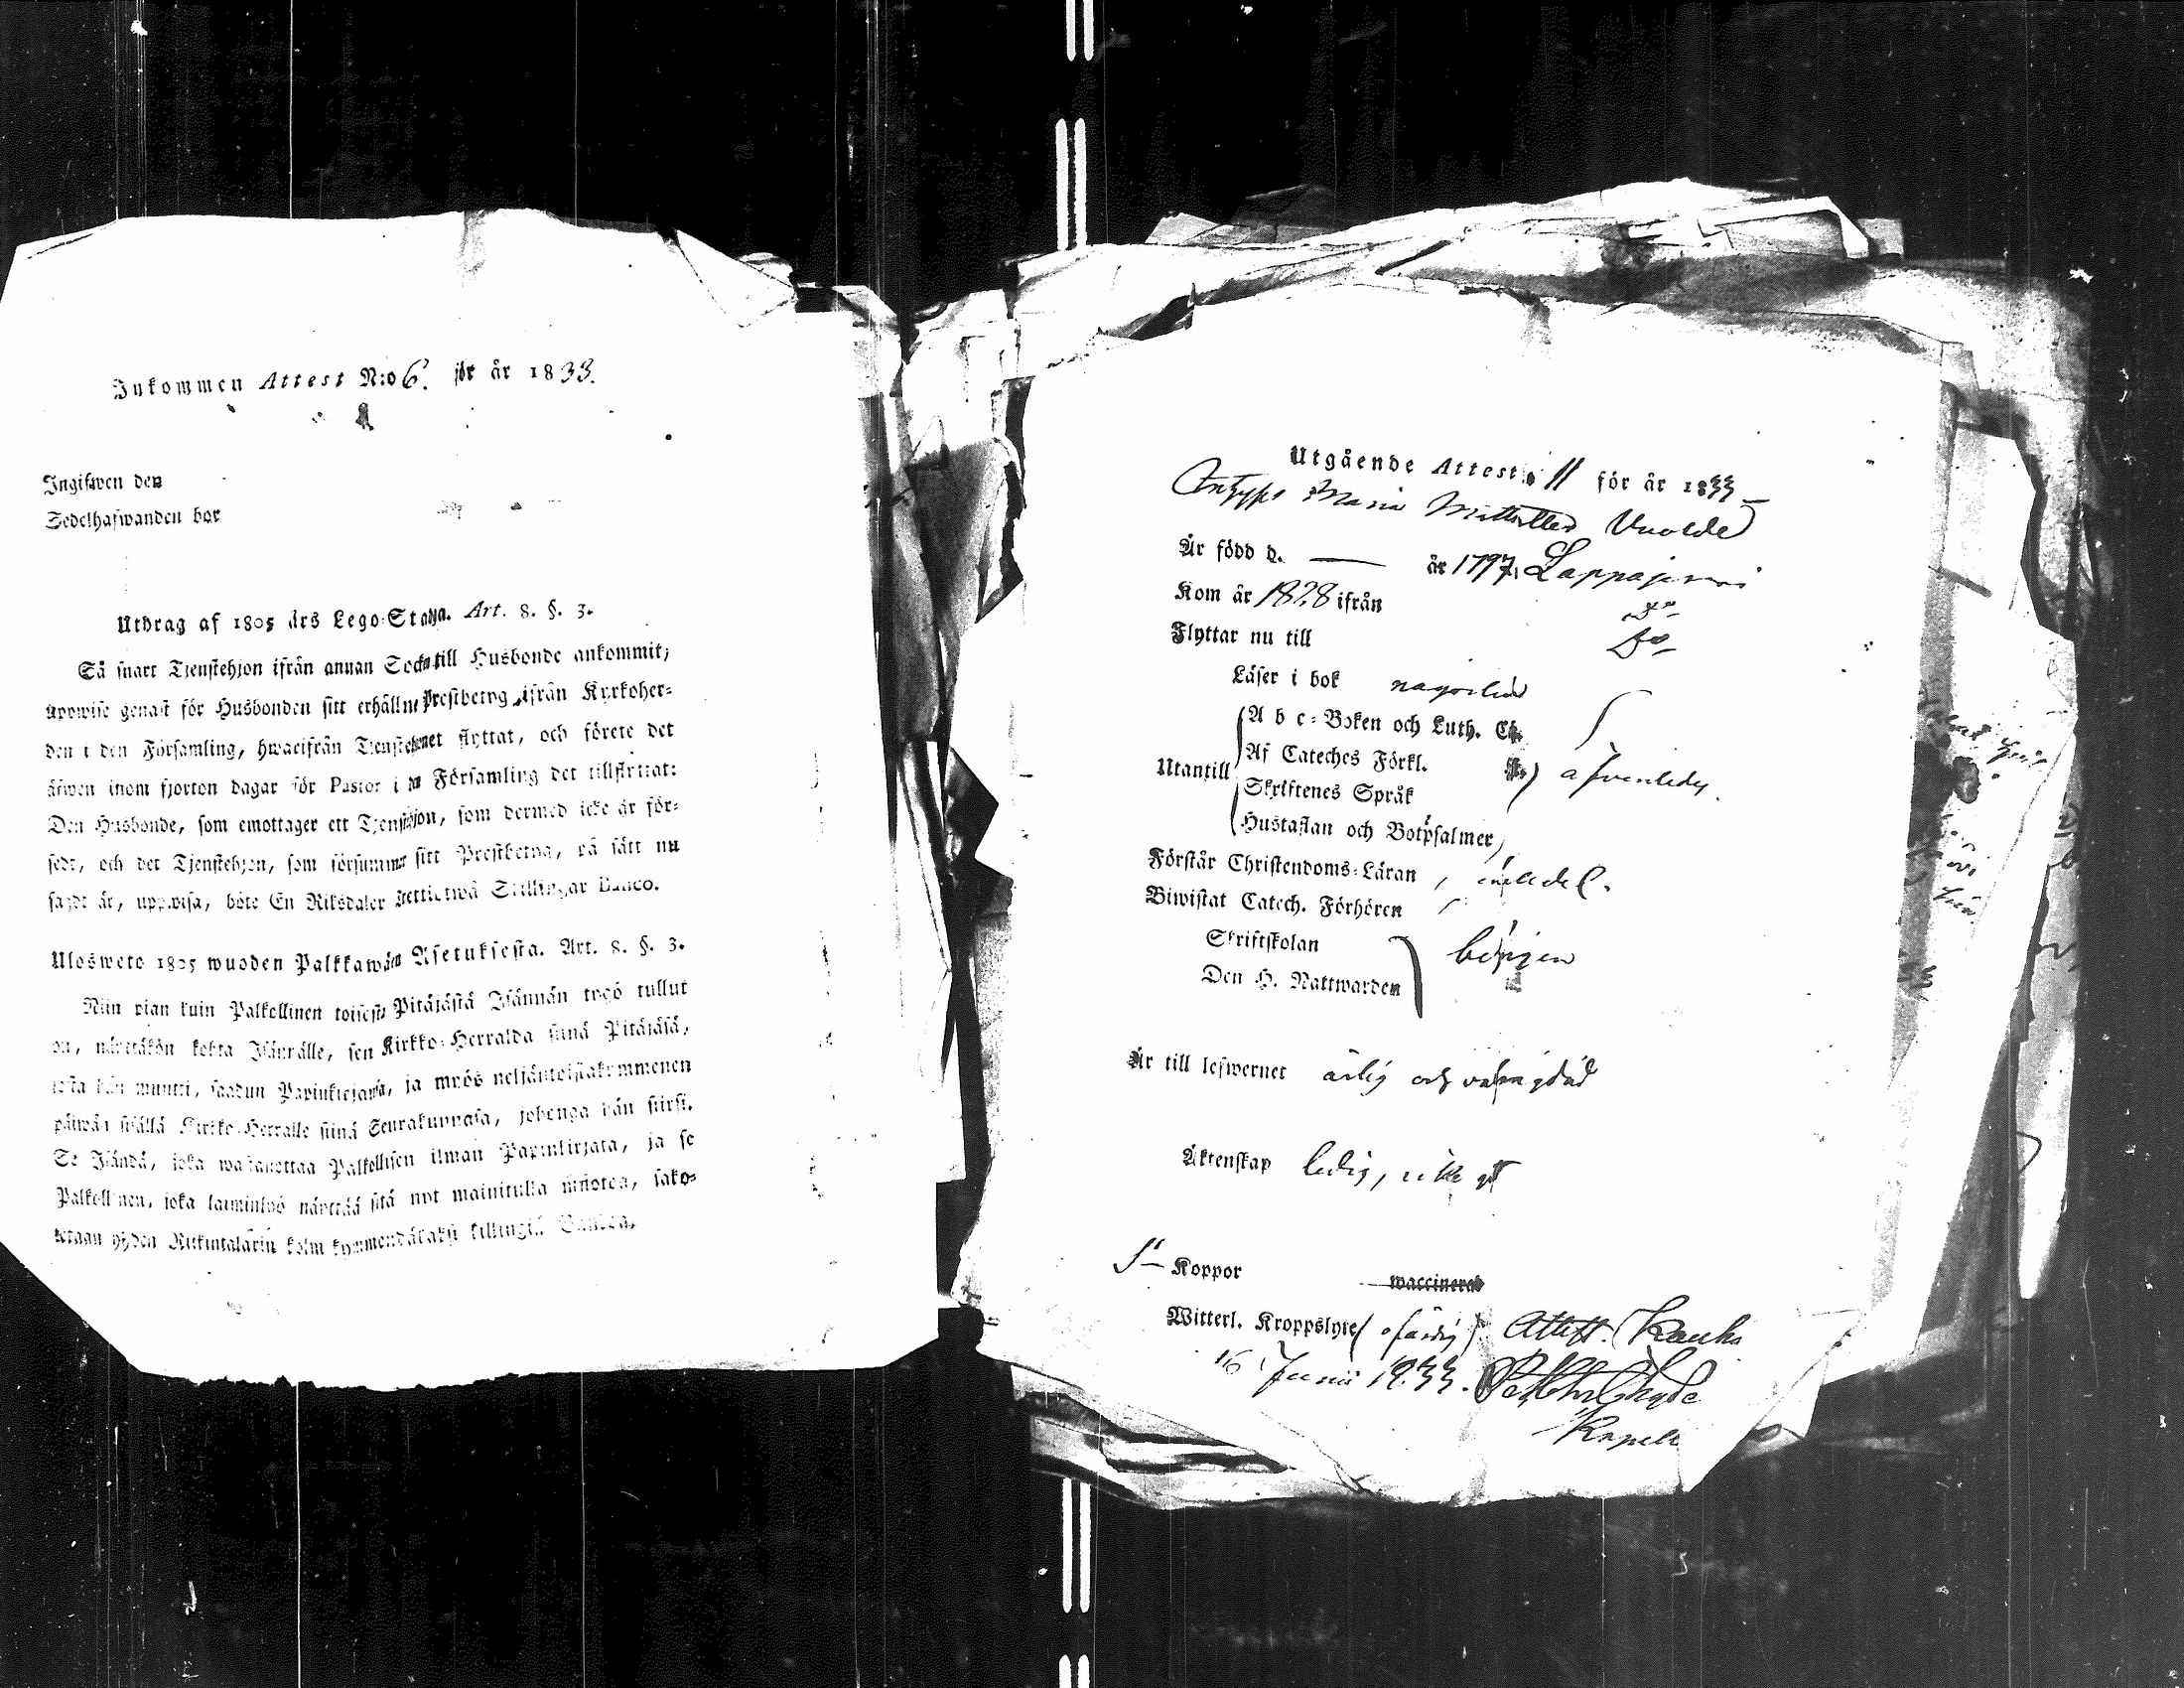 Inkommen Attest N:o 6. för år 1833.
Ingifwen den
Sedelhafwanden bor
Utdrag af 1805 års Lego-Stadga. Art. 8. §. 3.
Så snart Tjenstehjon ifrån annan Sockn till Husbonde ankommit,
uppwise genast för Husbonden sitt erhållne Prestbetyg ifrån Kyrkoher-
den i den Församling, hwarifrån Tjenstehjonet flyttat, och förete det
äfwen inom fjorton dagar för Pastor i den Församling det tillflyttat:
Den Husbonde, som emottager ett Tjenstehjon, som dermed icke är för-
sedt, och det Tjenstehjon, som försummar sitt Prestbetyg, på sätt nu
sagdt är, uppwisa, böte En Riksdaler trettiotwå Skillingar Banco.
Ulosweto 1805 wuoden Palkkawäen Asetuksesta. Art. 8. §. 3.
Niin pian kuin Palkollinen toisesta Pitäjästä Isännän tygö tullut
on, näyttäkön kohta Isännälle, sen Kirkko-Herralda siinä Pitäjäsä,
josta hän muutti, saadun Papinkirjansa, ja myös neljäntoistakymmenen
päiwän sisällä Kirkko-Herralle siinä Seurakunnasa, johonga hän siirsi.
Se Isändä, joka wastanottaa Palkollisen ilman Papinkirjata, ja se
Palkollinen, joka laiminlyö näyttää sitä nyt mainitulla muotoa, sako-
tetaan yhden Riikintalarin kolm kymmendäkaksi killingiä Bancoa.
Utgående Attest 11 för år 1833
Maria Vuolde
Är född d. — år 1797. Lappajervi
Kom år 1828 ifrån Do
Flyttar nu till Do
Läser i bok någorlunda
A b c-Boken och Luth. Ch.
Af Cateches Förkl.
Utantill
Skriftenes Språk
Hustaflan och Botpsalmer
Förstår Christendoms-Läran
Biwistat Catech. Förhören
Skriftskolan
Den H. Nattwarden
Är till lefwernet ärlig och
Äktenskap ledig,
Koppor waccinerad
Witterl. Kroppslyte (ofärdig) Attest. Kauha
16 Junii 1833.
Kapell